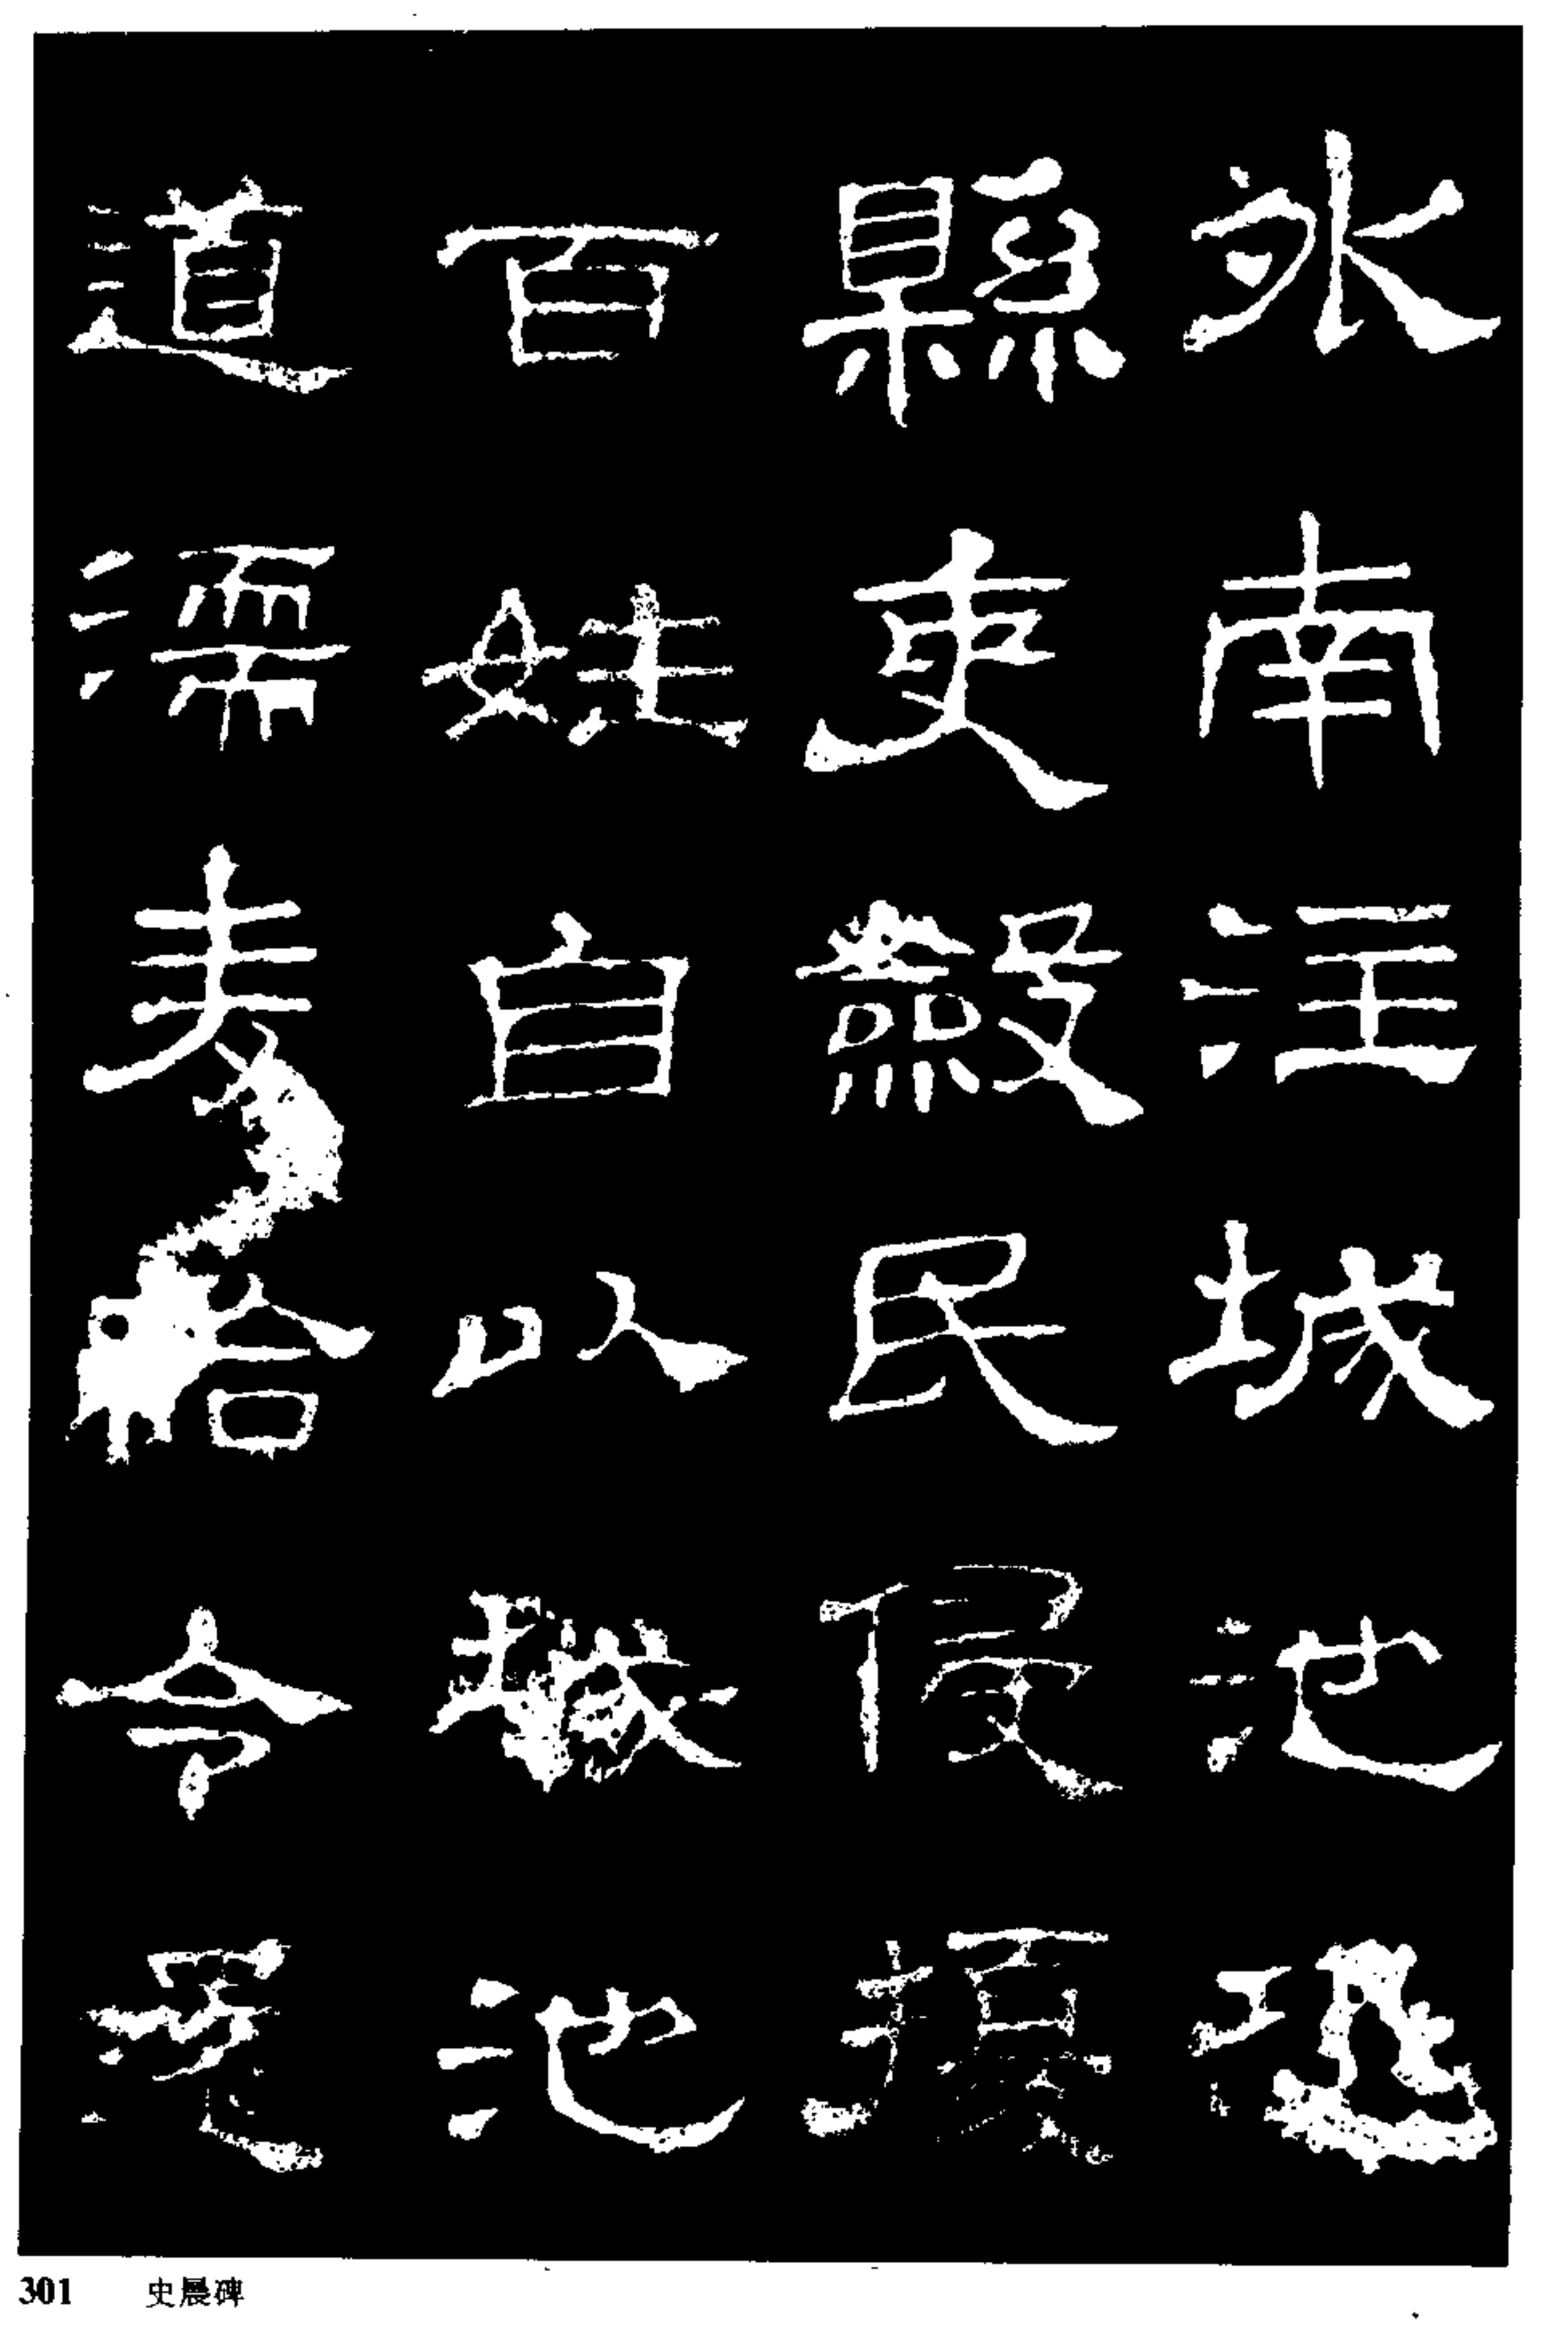 外南注城池恐
縣吏斂民侵擾
百姓自以城池
道濡麥給令還
301 史晨碑